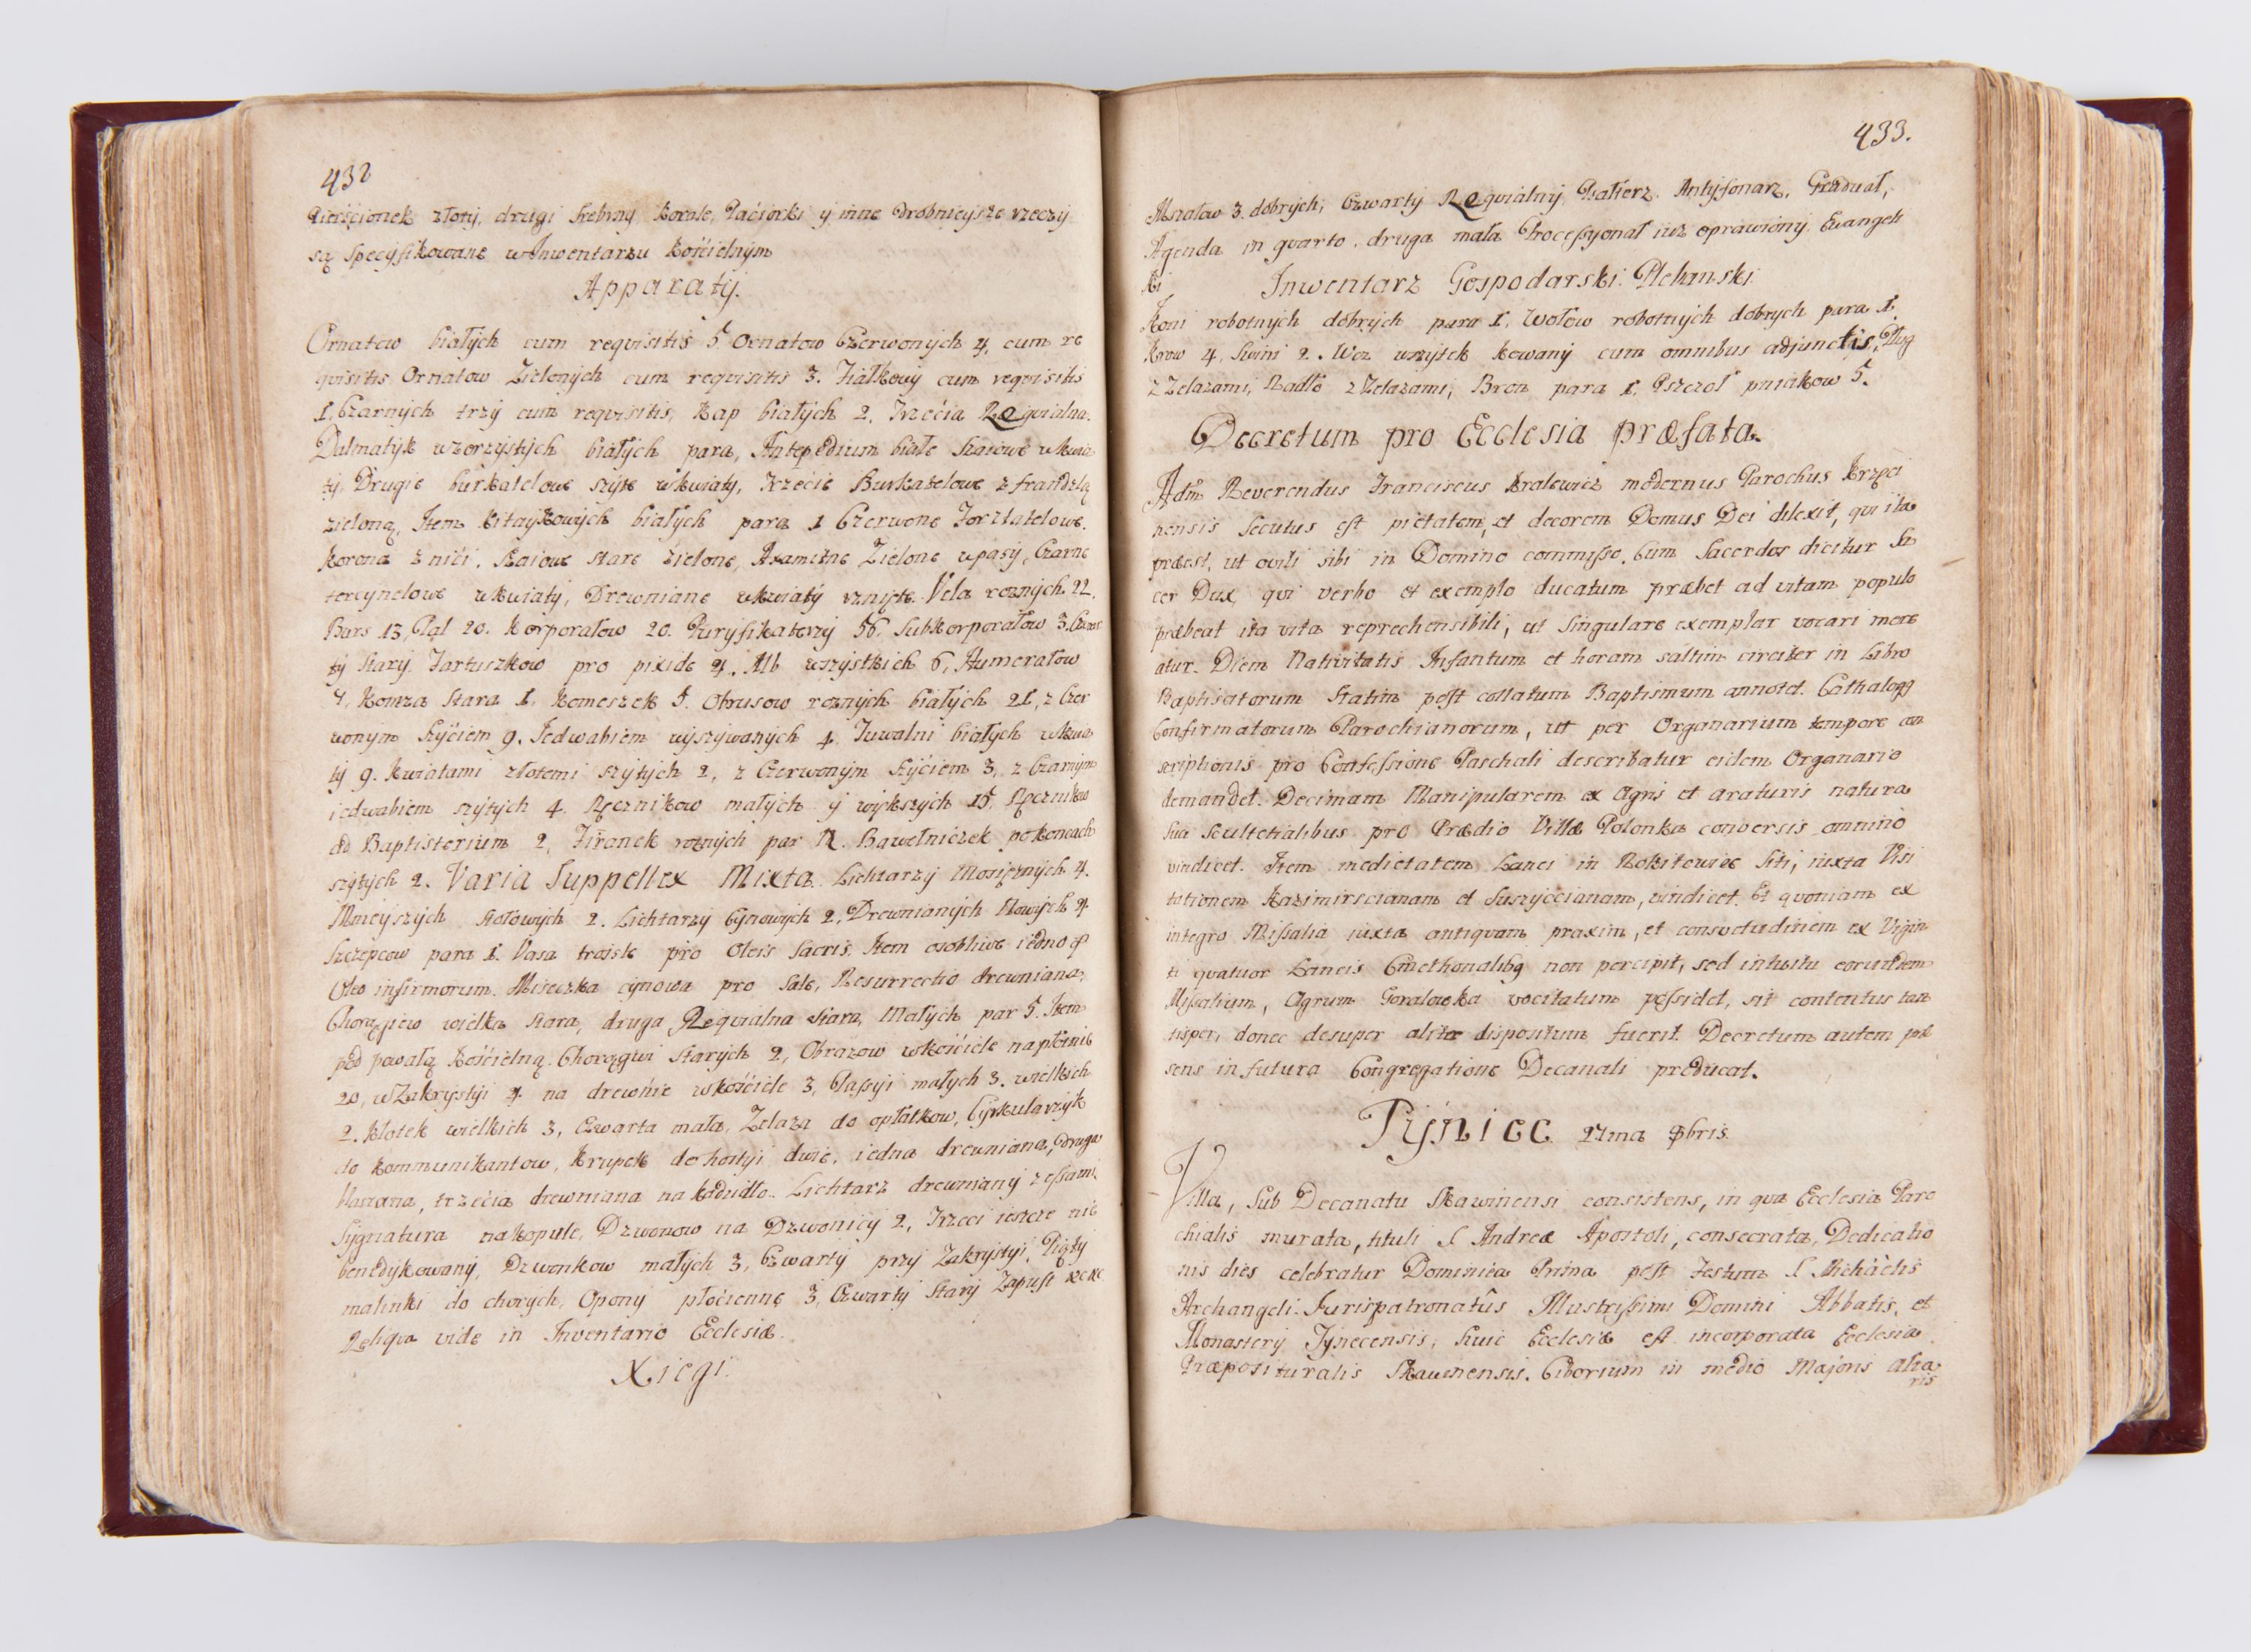 432
Pierścionek złoty, drugi srebrny korale, Paciorki y inne drobnieysze rzeczy
są specyfikowane w Inwentarzu kościelnym
Apparaty.
Ornatow białych cum requisitis 5 Ornatow Czerwonych 4, cum re
quisitis Ornatow Zielonych cum requisitis 3. Fiałkowy cum requisitis
1. Czarnych trzy cum requisitis, Kap białych 2. Trzecia Requialna.
Dalmatyk wzorzystych białych para, Antepedium białe w kwia
ty. Drugie burkatelowe szyte w kwiaty, Trzecie Burkatelowe z frandzlą
zieloną. Item kitaykowych białych para 1 Czerwone
korona z nici. stare zielone, Axamitne Zielone w pasy, Czarne
tercynelowe w kwiaty, Drewniane w kwiaty rznięte. Vela roznych 22.
Burs 13, Pal 20. Korporałow 20. Puryfikaterzy 56. Subkorporałow 3. Czwar
ty stary. Fartuszkow pro pixide 4. Alb wszystkich 6, Humerałow
7, Komza stara 1. Komeszek 5. Obrusow roznych białych 21, z Czer
wonym szyciem 9. Jedwabiem wyszywanych 4. Tuwalni białych w kwia
ty 9. kwiatami złotemi szytych 2, z Czerwonym szyciem 3, z Czarnym
iedwabiem szytych 4. Ręcznikow małych y większych 15, Ręcznikow
ad Baptisterium 2, Firanek roznych par Bawełniczek po koncach
szytych 2. Varia Suppellex Mixta. Lichtarzy Mosięznych 4.
Mnieyszych stołowych 2. Lichtarzy Cynowych 2, Drewnianych Nowych 4
Szczepcow para 1. Vasa troiste pro Oleis Sacris. Item osobliwe iedno
Oleo infirmorum. Miseczka cynowa pro Sale, Resurrectio drewniana,
Chorągiew wielka stara, druga Requialna stara, Małych par 5. Item
pod powałą kościelną. Chorągwi starych 2, Obrazow w kościele na płotnie
20, w Zakrystyi 4. na drewnie w kościele 3, Passyi małych 3. wielkich
2. Kłotek wielkich 3, czwarta mała, Zelaza do opłatkow, Cyrkularzyk
do kommunikantow, krupek do hostyi dwie, iedna drewniana, druga
blaszana, trzecia drewniana na kadzidło. Lichtarz drewniany z essami.
Sygnatura na kopule, Dzwonow na Dzwonicy 2, Trzeci ieszcze nie
benedykowany, Dzwonkow małych 3, Czwarty przy Zakrystyi, Piąty
malinki do chorych, Opony płocienne 3, Czwarty stary Zapust
Reliqua vide in Inventario Ecclesiæ.
Xięgi.
433.
Mszałow 3. dobrych, Czwarty Requialny, Psałterz, Antyfonarz, Graduał,
Agenda in quarto, druga mała Processyonał iuz oprawiony, Ewangeli
ki
Inwentarz Gospodarski Plebanski.
Koni robotnych dobrych para 1. Wołow robotnych dobrych para 1.
Krow 4, Swini 2. Woz wszystek kowany cum omnibus adjunctis, Pług
z Zelazami, Radło z Zelazami, Bron para 1. Pszczoł pniakow 5.
Decretum pro Ecclesia præfata.
Adm̃ Reverendus Franciscus Kralewicz modernus Parochus Krzęci
nensis secutus est pietatem, et decorem Domus Dei dilexit, qui ita
præest, ut ovili sibi in Domino commisso. Cum Sacerdos dicitur Sa
cer Dux, qui verbo et exemplo ducatum præbet ad vitam populo
præbeat ita vita reprechensibili, ut singulare exemplar vocari mere
atur. Diem Nativitatis Infantum et horam saltim circiter in Libro
Baptisatorum statim post collatum Baptismum annotet. Cathalogg
Confirmatorum Parochianorum, ut per Organarium tempore con
scriptionis pro Confessione Paschali describatur eidem Organario
demandet. Decimam Manipularem ex Agris et araturis natura
sua scultetialibus pro Prædio Villæ Polonka conversis omnino
vindicet. Item medietatem Lanei in Rokitowiec siti, iuxta Visi
tationem Kazimirscianam et Suszyccianam, vindicet. Et quoniam ex
integro Missalia iuxta antiquam praxim, et consuetudinem ex Vigin
ti quatuor Laneis Cmethonalibg non percipit, sed intuitu eorumdem
Missalium, Agrum Goralowka vocitatum possidet, sit contentus tan
tisper, donec desuper aliter dispositum fuerit. Decretum autem præ
sens in futura Congregatione Decanali producat.
Tyniec 27ma 9bris.
Villa, sub Decanatu Skawinensi consistens, in qua Ecclesia Paro
chialis murata, tituli S Andreæ Apostoli, consecrata, Dedicatio
nis dies celebratur Dominica Prima post Festum S Michäelis
Archangeli. Jurispatronatûs Illustrissimi Domini Abbatis, et
Monasterÿ Tynecensis, huic Ecclesiæ est incorporata Ecclesia
Præpositoralis Skawinensis. Ciborium in medio Majoris Alta
ris